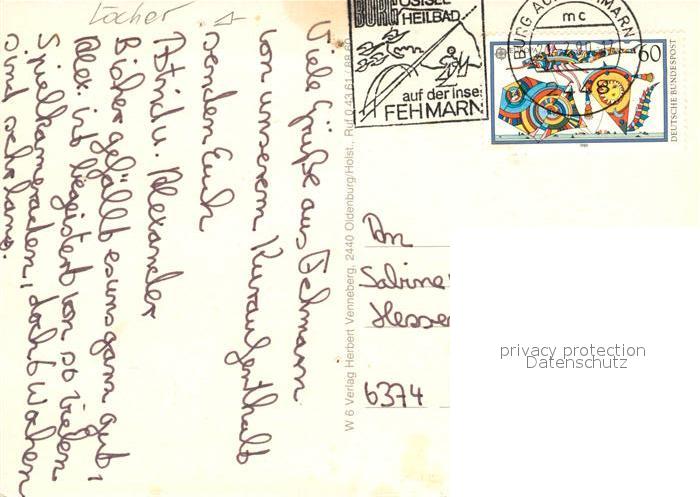 Locher
Viele Grüße aus Fehmarn
von unserem Kuraufenthalt
senden Euch
Astrid u. Alexander
Bisher gefällt es uns ganz gut,
Alex. ist begeistert von so vielen
Spielkameraden, doch 6 Wochen
sind sehr lang.
W 6 Verlag Herbert Venneberg, 2440 Oldenburg/Holst., Ruf 0 43 61 / 89 60
BURG OSTSEE
HEILBAD
auf der Insel
FEHMARN
BURG AUF FEHMARN
mc
60
DEUTSCHE BUNDESPOST
An
Sabine
Hesse
6374
privacy protection
Datenschutz